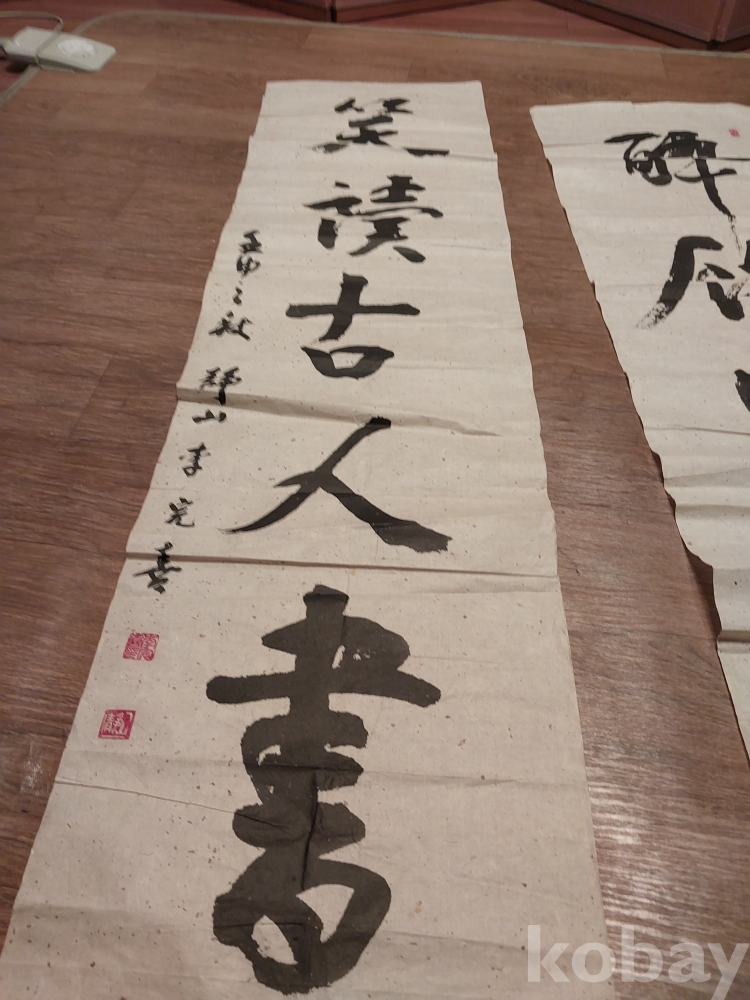 醉
笑讀古人書
壬申之秋 山 李完善
kobay